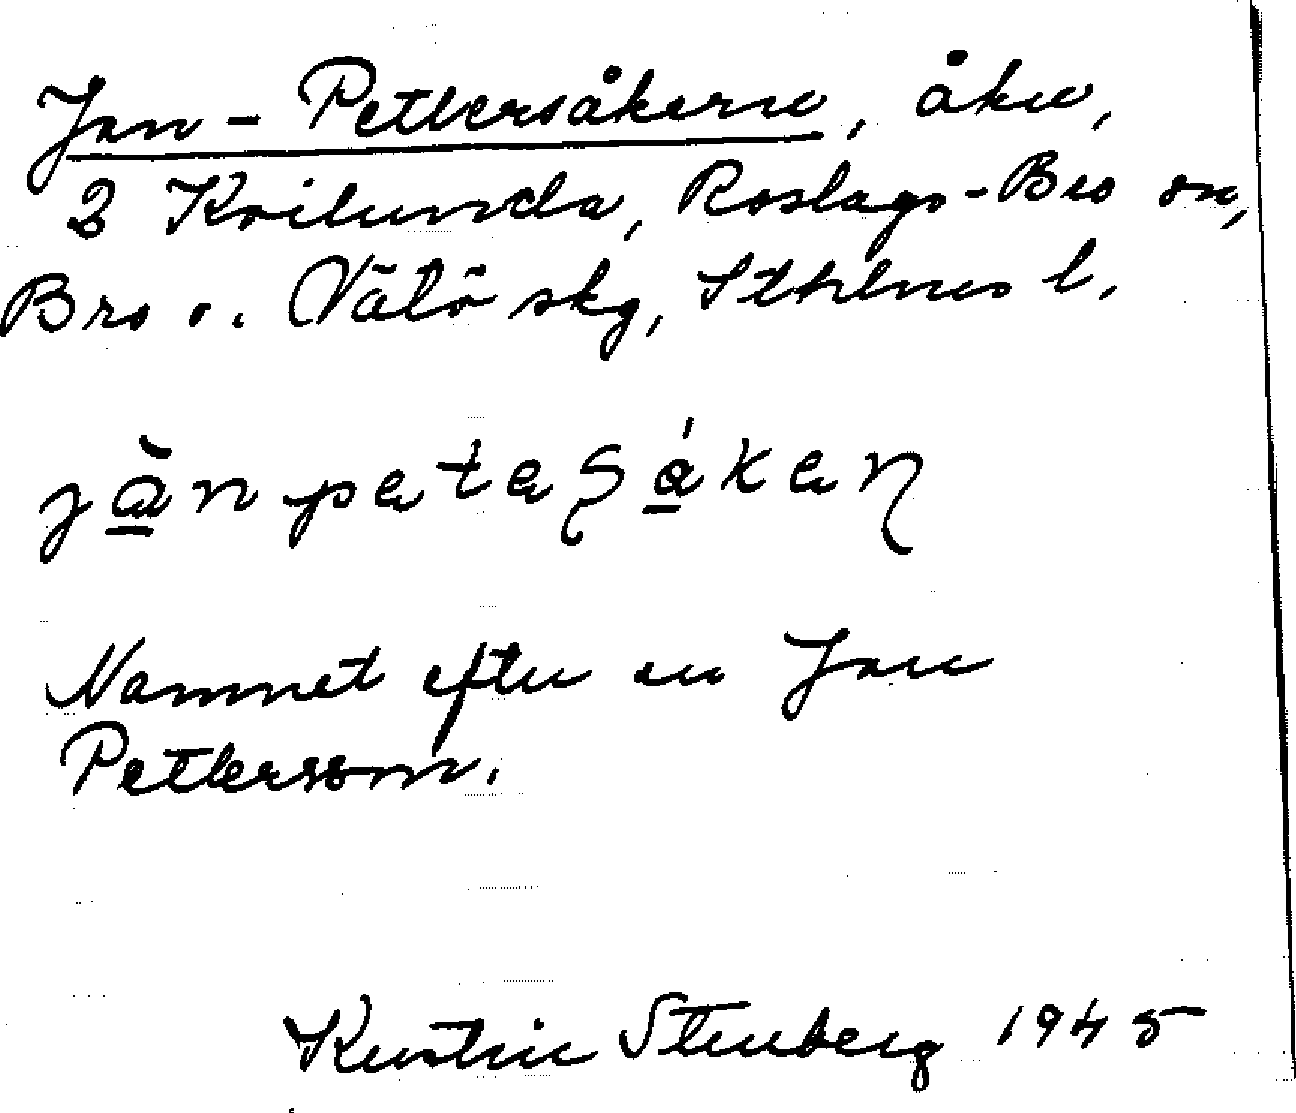 Jan-Pettersåkern, åker,
2 Kvilunda, Roslags-Bro sn,
Bro o. Vätö skg, Sthlms l.
jànpetesáken
Namnet efter en Jan
Pettersson.
Kerstin Stenberg 1945